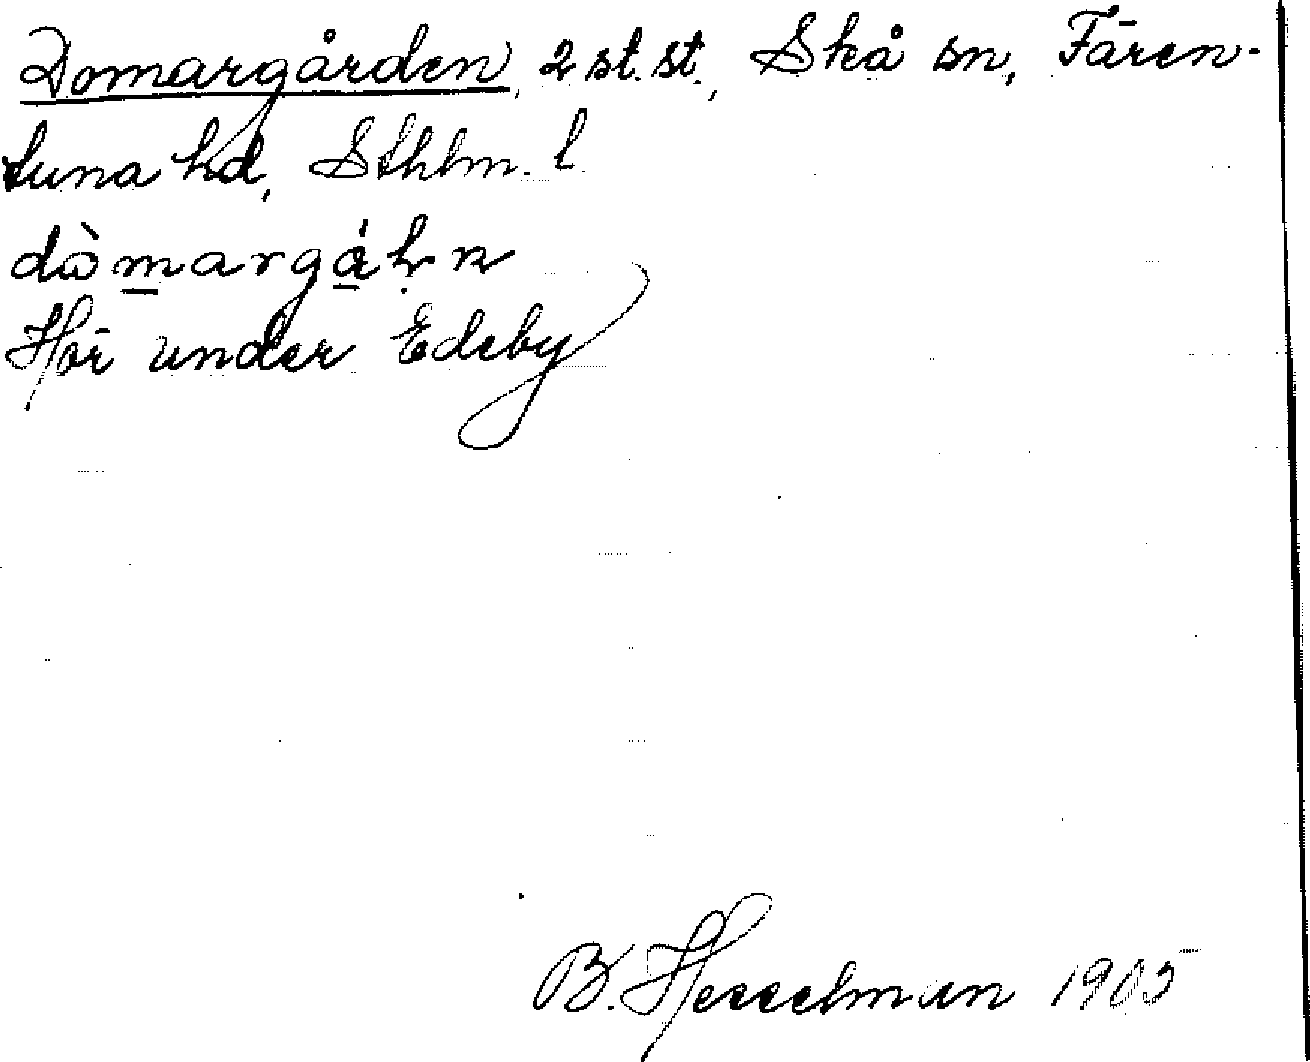 Domargården, 2 st. st., Skå sn, Fären-
tuna hd, Sthlm. l
Hör under Edeby
B. Hesselman 1905